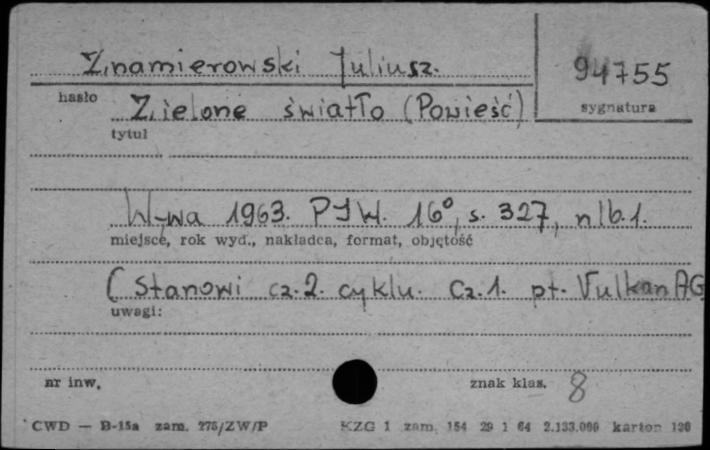 Znamierowski Juliusz.
94755
hasło
Zielone światło (Powieść)
sygnatura
tytuł
W-wa 1963. PIW. 16°, s. 327, nlb. 1.
miejsce, rok wyd., nakładca, format, objętość
(Stanowi cz. 2. cyklu. Cz. 1. pt. Vulkan AG
uwagi:
nr inw. znak klas. 8
CWD — B-15a zam. 275/ZW/P KZG 1 zam. 154 29 1 64 2.133.000 karton 120